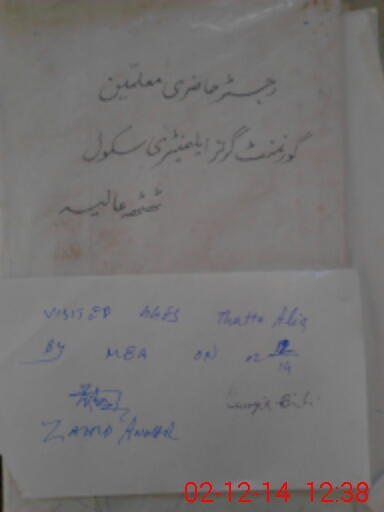 رجسٹر حاضری معلمین
گورنمنٹ گرلز ایلیمنٹری سکول
ٹھٹھہ عالیہ
VISITED GGES Thatta Alia
BY MEA ON 02 12/14
02-12-14 12:38